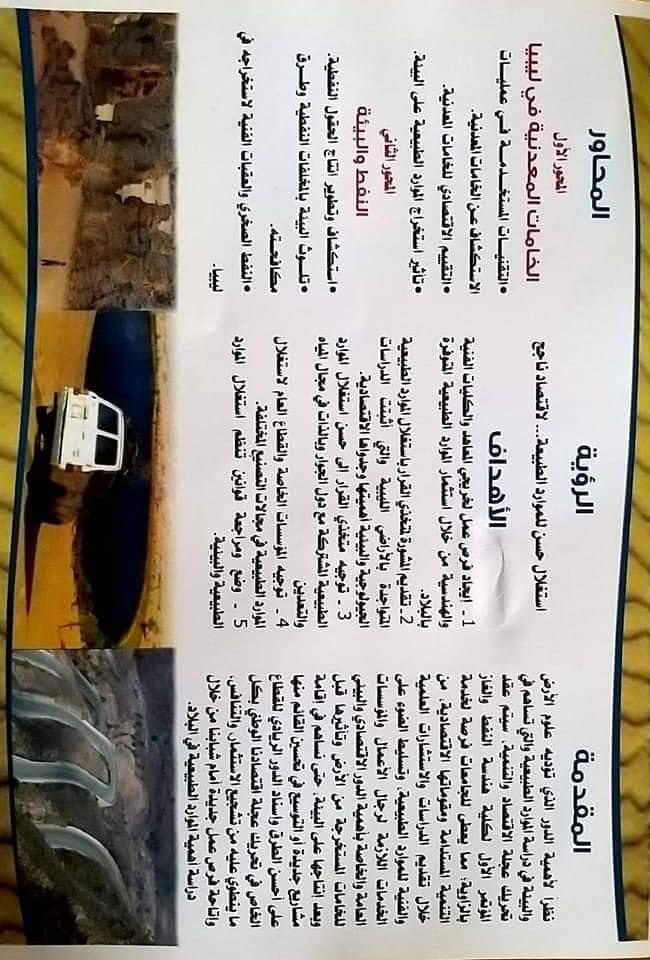 المقدمة
نظرا لأهمية الدور الذي تؤديه علوم الأرض
والبيئة في دراسة الموارد الطبيعية والتي تساهم في
تحريك عجلة الاقتصاد والتنمية، سيتم عقد
المؤتمر الأول لكلية هندسة النفط والغاز
بالزاوية؛ مما يعطى للجامعات فرصة لخدمة
التنمية المستدامة ومقوماتها الاقتصادية، من
خلال تقديم الدراسات والاستشارات العلمية
والفنية للموارد الطبيعية، وتسليط الضوء على
الخدمات اللازمة لرجال الأعمال والمؤسسات
العامة والخاصة بأهمية الدور الاقتصادي والبيئي
للخامات المستخرجة من الأرض وتأثيرها قبل
وبعد إنتاجها على البيئة، حتى تساهم في إقامة
مشاريع جديدة أو التوسيع في تحسين القائم منها
على أحسن الطرق وإسناد الدور الريادي للقطاع
الخاص في تحريك عجلة اقتصادنا الوطني بكل
ما ينطوي عليه من تشجيع الاستثمار، والتنافس،
وإتاحة فرص عمل جديدة أمام شبابنا من خلال
دراسة أهمية الموارد الطبيعية في البلاد.
الرؤية
استغلال حسن للموارد الطبيعة... لاقتصاد ناجح
الأهداف
1 ـ ايجاد فرص عمل لخريجي المعاهد والكليات الفنية
والهندسية من خلال استثمار الموارد الطبيعية المتوفرة
بالبلاد.
2 ـ تقديم المشورة لمتخذي القرار باستغلال الموارد الطبيعية
المتواجدة بالأراضي الليبية والتي اثبتت الدراسات
الجيولوجية والبيئية أهميتها وجدواها الاقتصادية.
3 ـ توجيه متخذي القرار الى حسن استغلال الموارد
الطبيعية المشتركة مع دول الجوار وبالذات في مجال المياه
والتعدين
4 ـ توجيه المؤسسات الخاصة والقطاع العام لاستغلال
الموارد الطبيعية في مجالات التصنيع المختلفة.
5 ـ وضع ومراجعة قوانين تنظم استغلال الموارد
الطبيعية والبيئية.
المحاور
المحور الأول
الخامات المعدنية في ليبيا
• التقنيات المستخدمة في عمليات
الاستكشاف عن الخامات المعدنية.
• التقييم الاقتصادي للخامات المعدنية.
• تأثير استخراج الموارد الطبيعية على البيئة.
المحور الثاني
النفط والبيئة
• استكشاف وتطوير انتاج الحقول النفطية.
• تلوث البيئة بالمخلفات النفطية وطرق
مكافحته.
• النفط الصخري والعقبات الفنية لاستخراجه في
ليبيا.